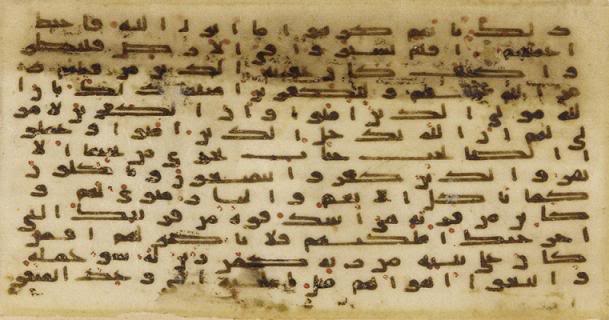 ذلك بانهم كرهوا ما انزل الله فاحبط
اعملهم افلم يسيروا في الارض فينظر
وا كيف كان عقبة الذين من قبلهم د
مر الله عليهم وللكفرين امثلها ذلك بان ا
لله مولى الذين امنوا وان الكفرين لا مو
لى لهم ان الله يدخل الذين امنوا وعملوا
الصلحت جنت تجري من تحتها الا
نهر والذين كفروا يتمتعون وياكلون
كما تاكل الانعم والنار مثوى لهم و
كاين من قرية هي اشد قوة من قريتك التي
اخرجتك اهلكنهم فلا ناصر لهم افمن
كان على بينة من ربه كمن زين له سو عمله
واتبعوا اهواهم مثل الجنة التي وعد المتقون